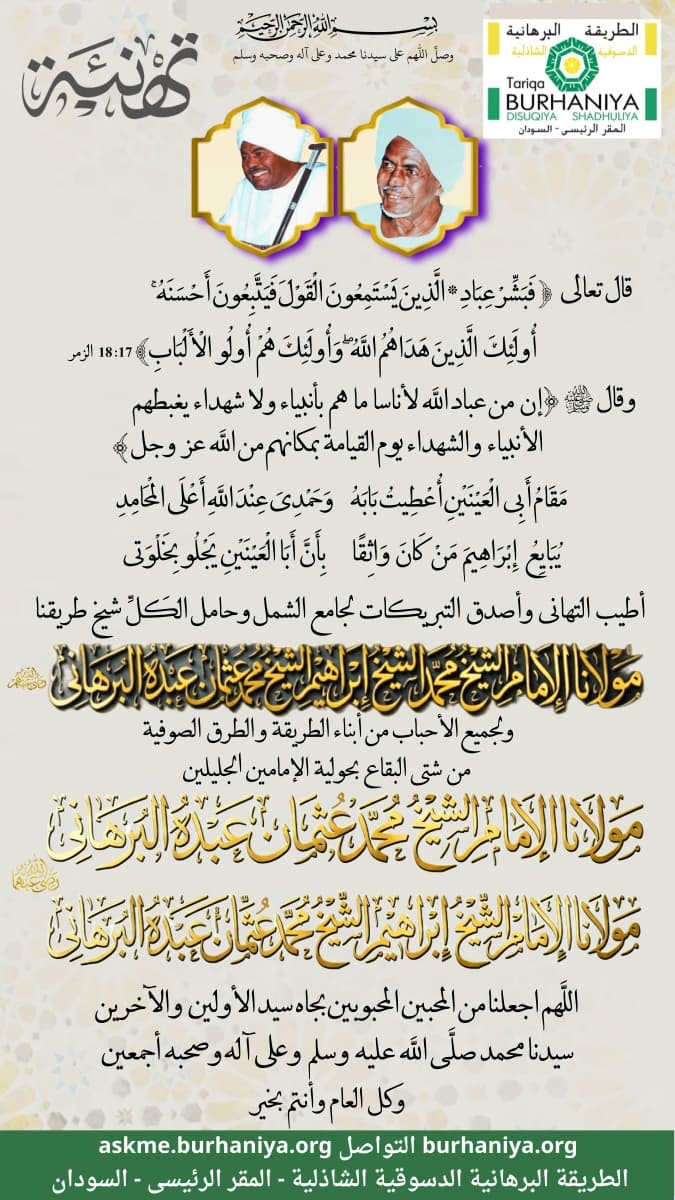 بسم الله الرحمن الرحيم
وصلِّ اللهم على سيدنا محمد وعلى آله وصحبه وسلم
تهنئة
الطريقة البرهانية
الدسوقية الشاذلية
Tariqa
BURHANIYA
DISUQIYA SHADHULIYA
المقر الرئيسى - السودان
قال تعالى ﴿فَبَشِّرْ عِبَادِ * الَّذِينَ يَسْتَمِعُونَ الْقَوْلَ فَيَتَّبِعُونَ أَحْسَنَهُ ۚ
أُولَئِكَ الَّذِينَ هَدَاهُمُ اللَّهُ ۖ وَأُولَئِكَ هُمْ أُولُو الْأَلْبَابِ﴾ 18:17 الزمر
وقال ﷺ ﴿إن من عباد الله لأناسا ما هم بأنبياء ولا شهداء يغبطهم
الأنبياء والشهداء يوم القيامة بمكانهم من الله عز وجل﴾
مَقَامُ أَبِى الْعَيْنَيْنِ أُعْطِيتُ بَابَهُ وَحَمْدِىَ عِنْدَ اللَّهِ أَعْلَى الْمَحَامِدِ
يُبَايِعُ إِبْرَاهِيمَ مَنْ كَانَ وَاثِقًا بِأَنَّ أَبَا الْعَيْنَيْنِ يَجْلُو بِخَلْوَتى
أطيب التهانى وأصدق التبريكات لجامع الشمل وحامل الكَلِّ شيخ طريقنا
مَوْلَانَا الإِمَامِ الشَّيْخِ مُحَمَّد الشَّيْخ إِبْرَاهِيم الشَّيْخ مُحَمَّد عُثْمَان عَبْدُهُ البُرهَانِى
رضى الله عنهم
ولجميع الأحباب من أبناء الطريقة والطرق الصوفية
من شتى البقاع بحولية الإمامين الجليلين
مَوْلَانَا الإِمَامِ الشَّيْخ مُحَمَّد عُثْمَان عَبْدُهُ البُرْهَانِى
رضى الله عنهما
مَوْلَانَا الإِمَامِ الشَّيْخ إِبْرَاهِيم الشَّيْخ مُحَمَّد عُثْمَان عَبْدُهُ البُرْهَانِى
اللَّهم اجعلنا من المحبين المحبوبين بجاه سيد الأولين والآخرين
سيدنا محمد صلَّى الله عليه وسلم وعلى آله وصحبه أجمعين
وكل العام وأنتم بخير
burhaniya.org التواصل askme.burhaniya.org
الطريقة البرهانية الدسوقية الشاذلية - المقر الرئيسى - السودان